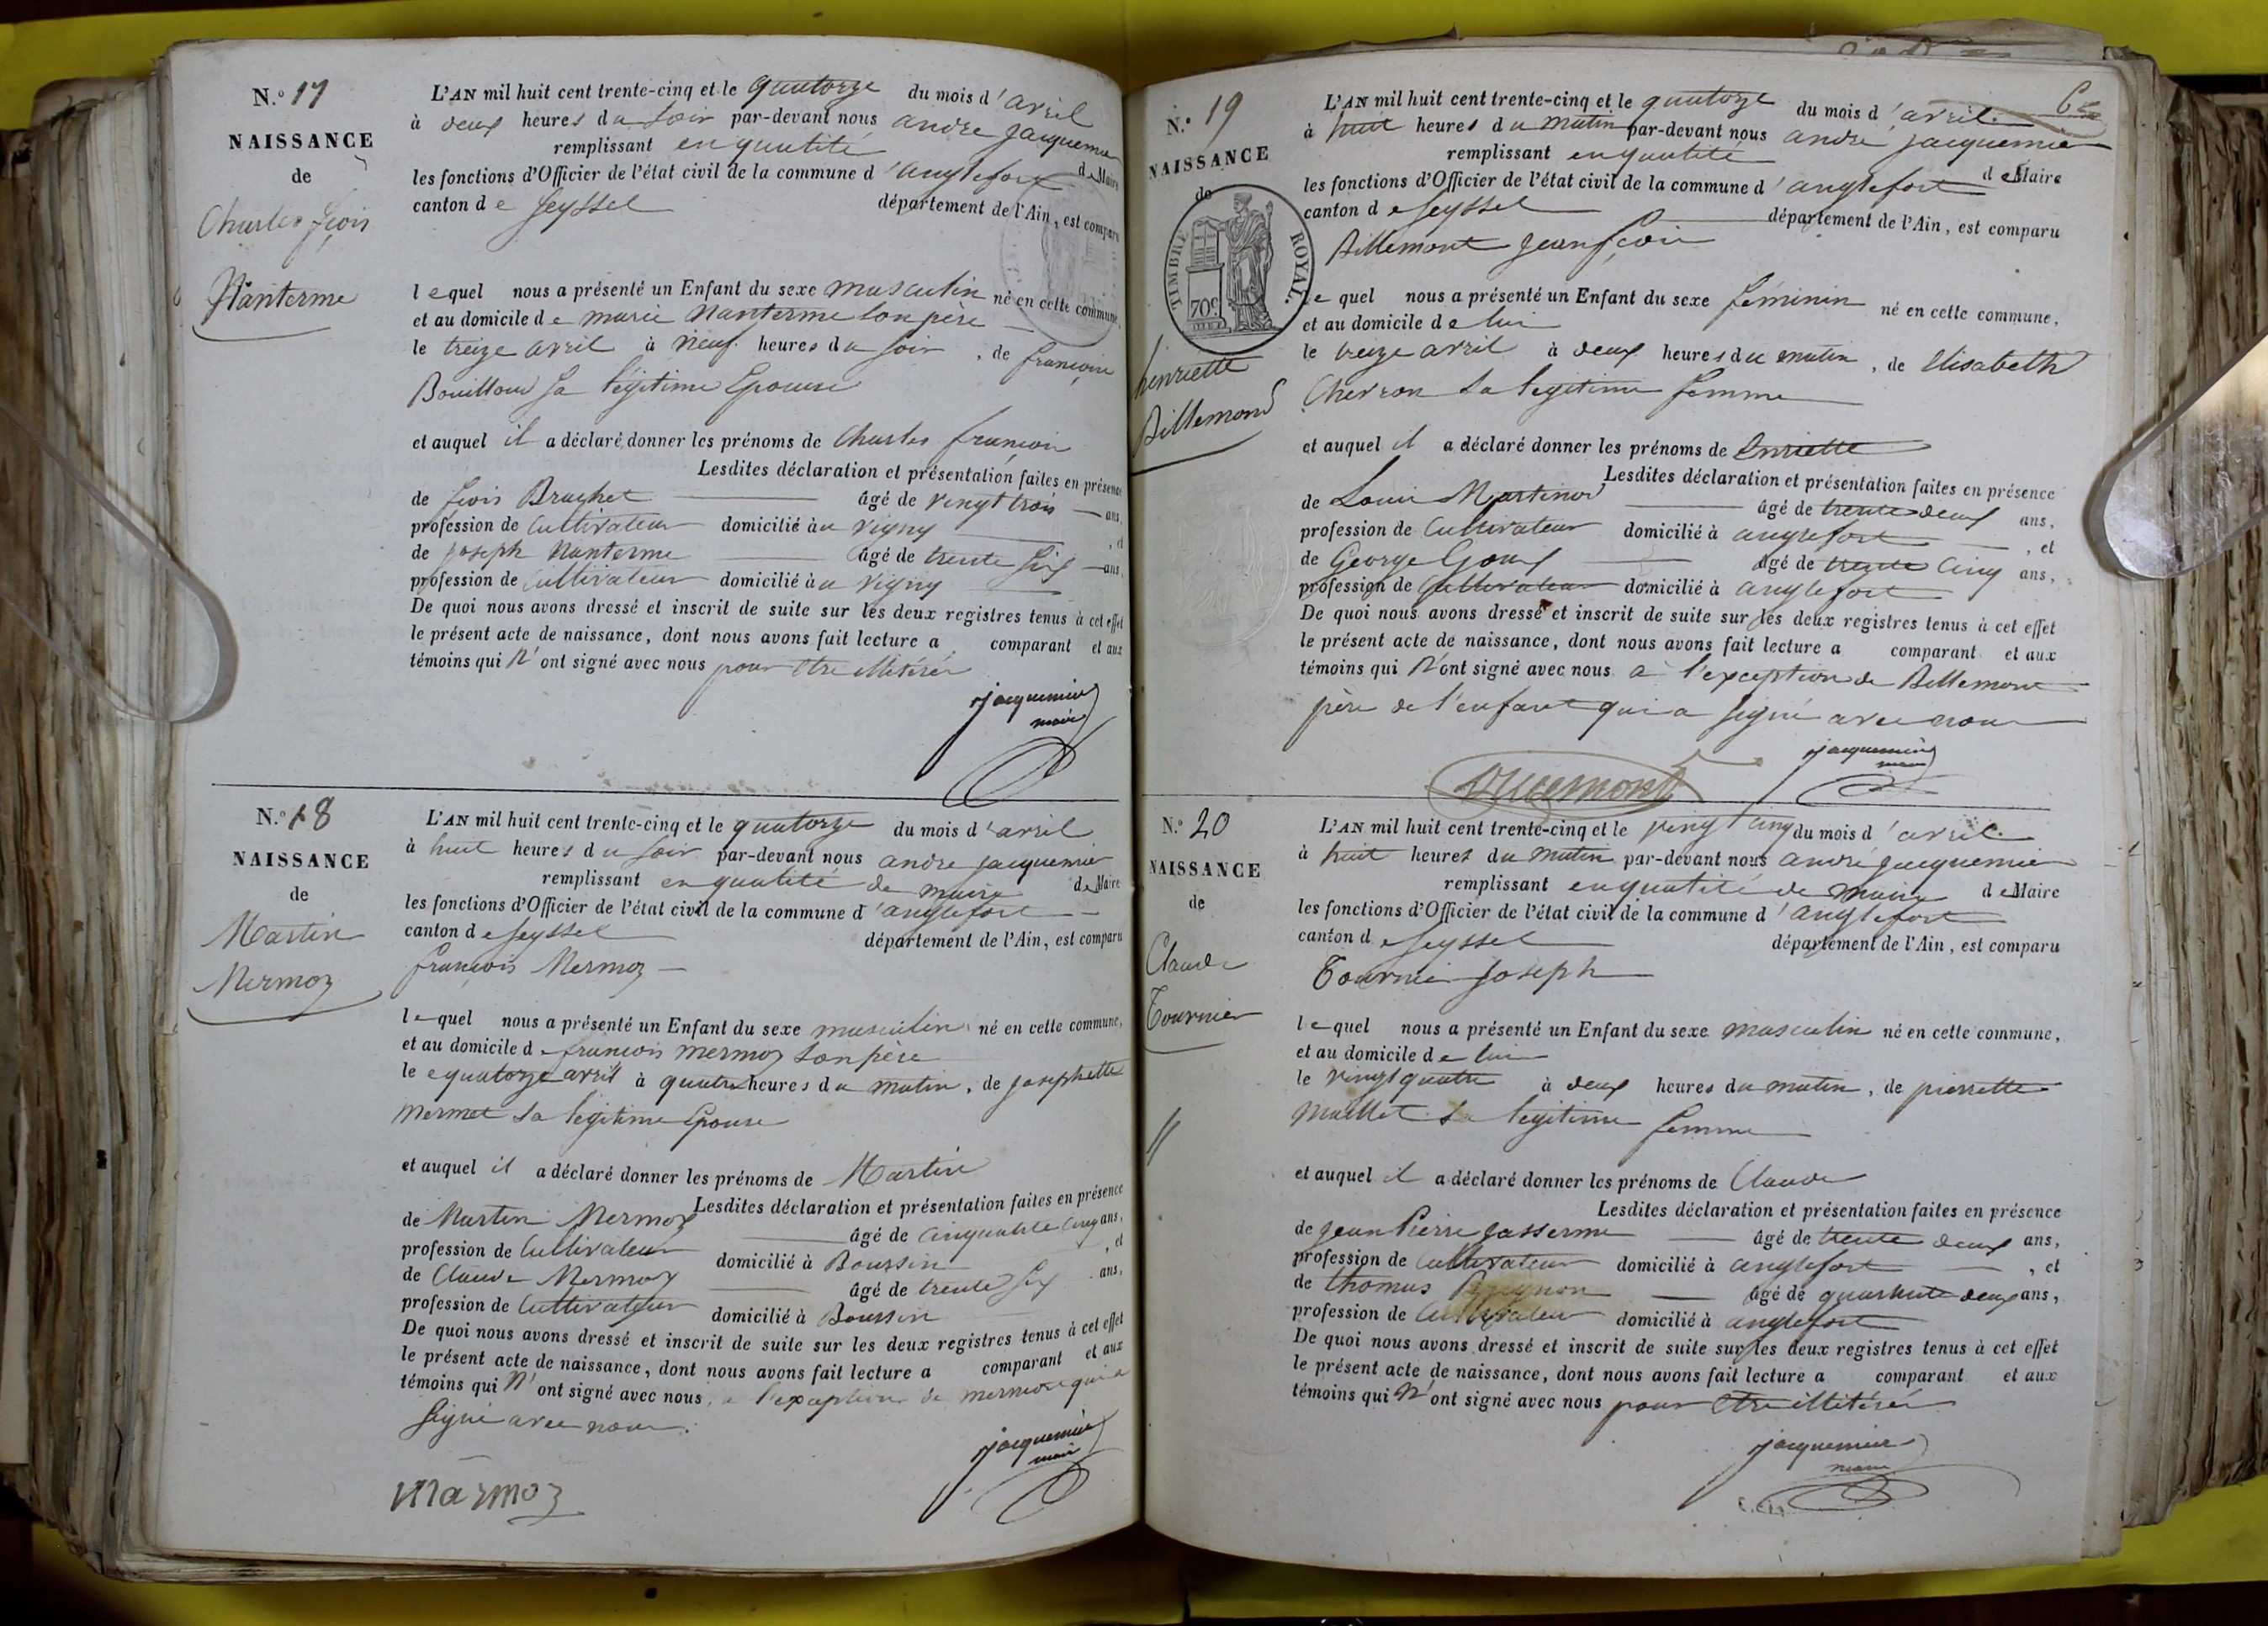 N.º 17
NAISSANCE
de
Charles fçois
Nanterme
L'AN mil huit cent trente-cinq et le quatorze du mois d'avril
à deux heures du soir par-devant nous andre jacquemier
remplissant en qualité de Maire
les fonctions d'Officier de l'état civil de la commune d'anglefort
canton de Seyssel département de l'Ain, est comparu
lequel nous a présenté un Enfant du sexe masculin né en cette commune,
et au domicile de marie Nanterme son pere
le treize avril à neuf heures du soir, de françoise
Bouilloud sa légitime Epouse
et auquel il a déclaré donner les prénoms de Charles françois
Lesdites déclaration et présentation faites en présence
de fçois Brachet âgé de vingt trois ans,
profession de Cultivateur domicilié à u vigny, et
de joseph Nanterme âgé de trente six ans,
profession de Cultivateur domicilié à u vigny
De quoi nous avons dressé et inscrit de suite sur les deux registres tenus à cet effet
le présent acte de naissance, dont nous avons fait lecture a comparant et aux
témoins qui n'ont signé avec nous pour être illitérés
jacquemier
maire
N.º 18
NAISSANCE
de
Martin
Mermoz
L'AN mil huit cent trente-cinq et le quatorze du mois d'avril
à huit heures du soir par-devant nous andre jacquemier
remplissant en qualité de maire de Maire
les fonctions d'Officier de l'état civil de la commune d'anglefort
canton de Seyssel département de l'Ain, est comparu
françois Mermoz
lequel nous a présenté un Enfant du sexe masculin né en cette commune,
et au domicile de francois mermoz son père
le quatorze avril à quatre heures du matin, de josephette
mermet sa légitime Epouse
et auquel il a déclaré donner les prénoms de Martin
Lesdites déclaration et présentation faites en présence
de Martin Mermoz âgé de cinquante cinq ans,
profession de Cultivateur domicilié à Boursin, et
de Claude Mermoz âgé de trente six ans,
profession de Cultivateur domicilié à Boursin
De quoi nous avons dressé et inscrit de suite sur les deux registres tenus à cet effet
le présent acte de naissance, dont nous avons fait lecture a comparant et aux
témoins qui n'ont signé avec nous, a l'exception de mermoz qui a
signé avec nous.
marmoz
jacquemier
maire
6
N.º 19
NAISSANCE
de
TIMBRE ROYAL.
70c
henriette
Billemond
L'AN mil huit cent trente-cinq et le quatorze du mois d'avril
à huit heures du matin par-devant nous andre jacquemier
remplissant en qualité de Maire
les fonctions d'Officier de l'état civil de la commune d'anglefort
canton de Seyssel département de l'Ain, est comparu
Billemont jean fçois
lequel nous a présenté un Enfant du sexe féminin né en cette commune,
et au domicile de lui
le treize avril à deux heures du matin, de Elisabeth
Chevron sa legitime femme
et auquel il a déclaré donner les prénoms de Enriette
Lesdites déclaration et présentation faites en présence
de Louis Martinod âgé de trente deux ans,
profession de Cultivateur domicilié à anglefort, et
de George Goux âgé de trente cinq ans,
profession de Cultivateur domicilié à anglefort
De quoi nous avons dressé et inscrit de suite sur les deux registres tenus à cet effet
le présent acte de naissance, dont nous avons fait lecture a comparant et aux
témoins qui n'ont signé avec nous a l'exception de Billemont
père de l'enfant qui a signé avec nous
Billemont
jacquemier
maire
N.º 20
NAISSANCE
de
Claude
Tournier
L'AN mil huit cent trente-cinq et le vingt cinq du mois d'avril
à huit heures du matin par-devant nous andré jacquemier
remplissant en qualité de maire de Maire
les fonctions d'Officier de l'état civil de la commune d'anglefort
canton de Seyssel département de l'Ain, est comparu
Tournier joseph
lequel nous a présenté un Enfant du sexe masculin né en cette commune,
et au domicile de lui
le vingt quatre à deux heures du matin, de pierrette
maillet sa legitime femme
et auquel il a déclaré donner les prénoms de Claude
Lesdites déclaration et présentation faites en présence
de jean Pierre Jasserme âgé de trente deux ans,
profession de Cultivateur domicilié à anglefort, et
de thomas âgé de quarante deux ans,
profession de Cultivateur domicilié à anglefort
De quoi nous avons dressé et inscrit de suite sur les deux registres tenus à cet effet
le présent acte de naissance, dont nous avons fait lecture a comparant et aux
témoins qui n'ont signé avec nous pour être illitérés
jacquemier
maire